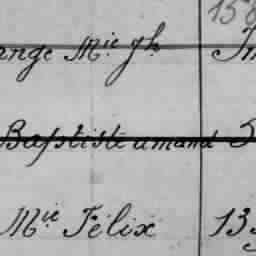 ange Mie Jh
Baptiste amand
Mie Félix 13